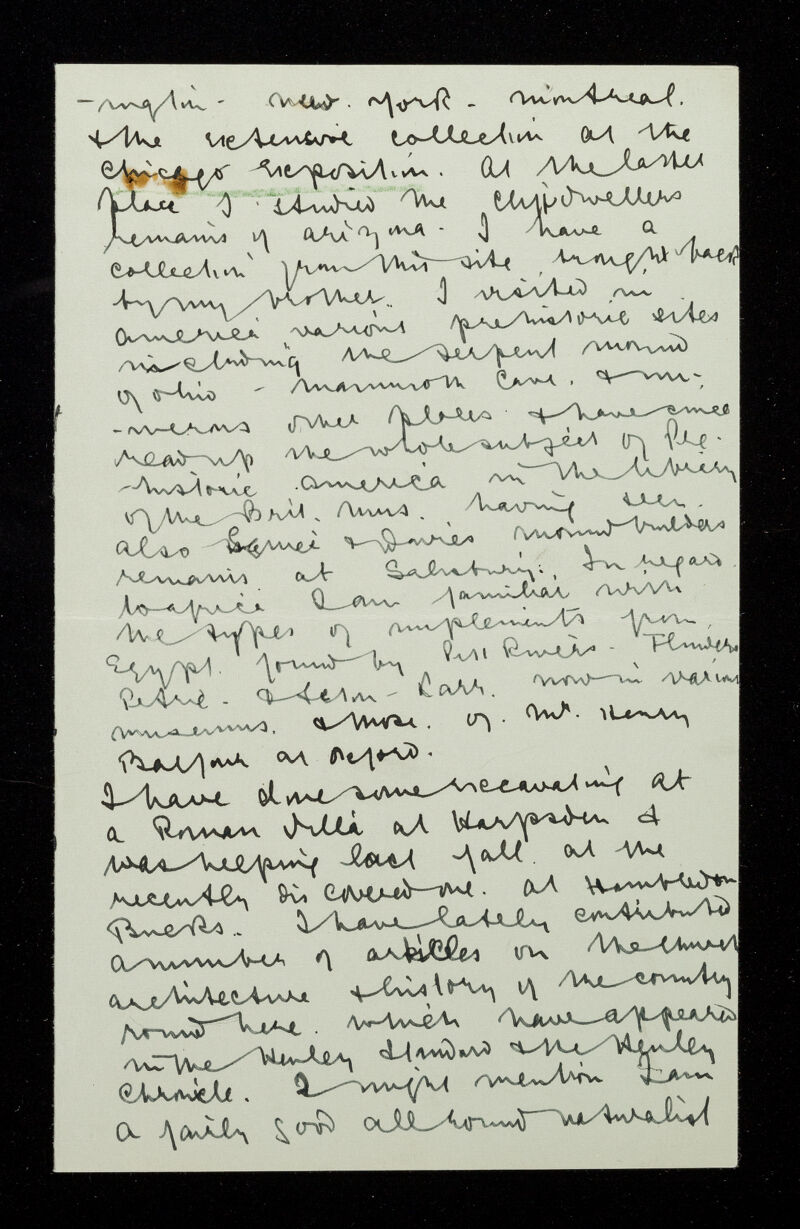 -ngton - new. york - montreal.
& the extensive collection at the
Chicago Exposition. At the latter
place I studied the Cliff dwellers
remains of arizona - I have a
collection from this site brought back
by my brother. I visited in
america various prehistoric sites
including the serpent mound
of ohio - mammoth Cave. & nu-
-merous other places & have since
read up the whole subject of Pre-
-historic america in the library
of the Brit. Mus. having seen
also & Davies moundbuilders
remains at Salisbury. In regard
to africa I am familiar with
the types of implements from
Egypt. found by Pitt Rivers - Flinders
Petrie - & Seton - Karr. now in various
museums. & those. of. Mr. Henry
Balfour at oxford.
I have done some excavating at
a Roman villa at Harpsden &
was helping last fall at the
recently discovered one. at Hambledon
Bucks. I have lately contributed
a number of articles on the church
architecture & history of the country
round here. which have appeared
in the Henley Standard & the Henley
Chronicle. I might mention I am
a fairly good all round naturalist